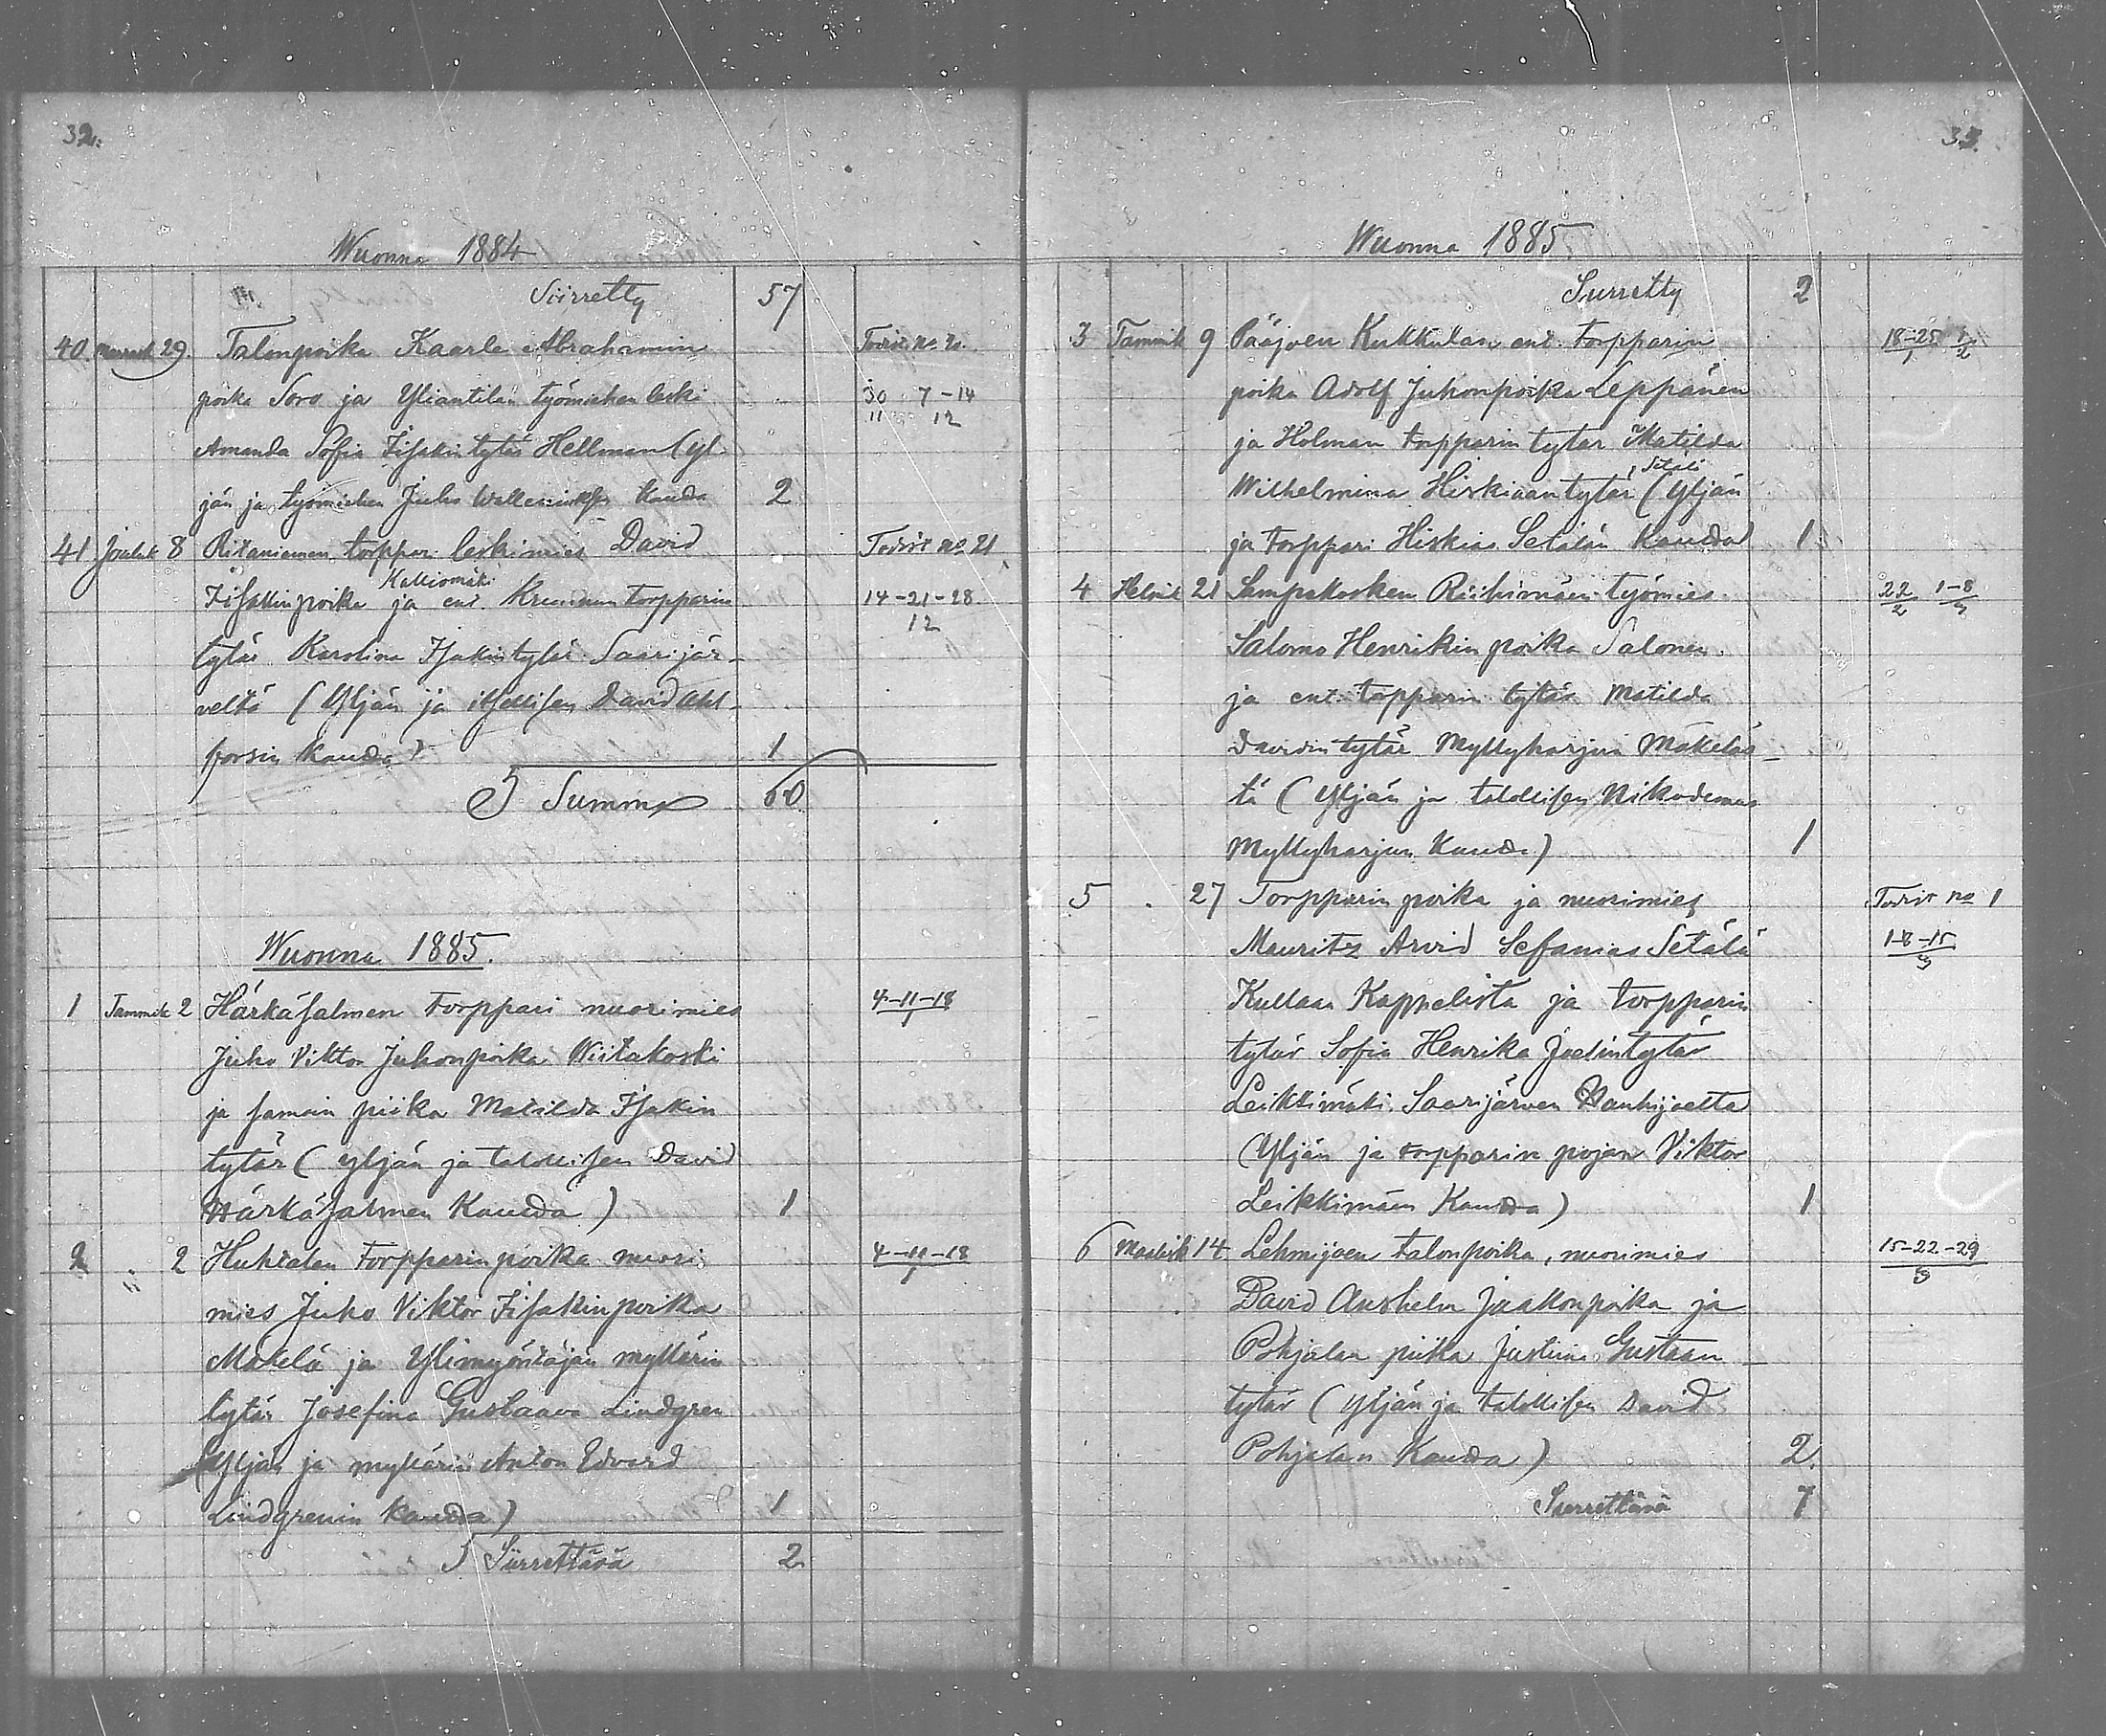 32.
Wuonna 1884
Siirretty 57
40 Marrask 29. Talonpoika Kaarle Abrahamin Todist. no 20
poika Soro ja Yliantilan työmiehen leski 30/11 7-14/12
Amanda Sofia Iisakintytär Hellman (yl
jän ja työmiehen Juho Walleniuksen kanda 2
41 Jouluk 8 Ritaniemen torppari leskimies David Todist no 21
Iisakinpoika Kalliomäki ja ent. Krunnun torpparin 14-21-28/12
tytär Karolina Isakintytär Saarijär-
veltä (Yljän ja itsellisen David Ahl-
forsin kanda) 1
Summa 60
Wuonna 1885.
1 Tammik 2 Härkäsalmen torppari nuorimies 4-11-18/1
Juho Viktor Juhonpoika Wiitakoski
ja samoin piika Matilda Isakin
tytär (yljän ja talollisen David
Härkäsalmen Kanda) 1
2 " 2 Huhtalan torpparinpoika nuori 4-11-18/1
mies Juho Viktor Iisakinpoika
Mäkelä ja Ylimyöntäjän myllärin
tytär Josefina Gustaava Lindgren
(Yljän ja mylläri Anton Edvard
Lindgrenin kanda) 1
Siirrettävä 2
33.
Wuonna 1885
Siirretty 2
3 Tammik 9 Pääjoen Kukkulan ent. torpparin 18-25/1 1/2
poika Adolf Juhonpoika Leppänen
ja Holman torpparin tytär Matilda
Wilhelmina Hiskiaantytär, Setälä (Yljän
ja torppari Hiskias Setälän kanda) 1
4 Helmik 21 Lampakosken Riihimäen työmies 22/2 1-8/3
Salomo Henrikin poika Salonen
ja ent. torpparin tytär Matilda
Davidin tytär Myllyharjun Mäkeläs-
tä (Yljän ja talollisen Nikodemus
Myllyharjun kanda) 1
5 27 Torpparin poika ja nuorimies Todist no 1
Mauritz Arvid Sefanias Setälä 1-8-15/3
Kullaan Kappelista ja torpparin
tytär Sofia Henrika Joelintytär
Leikkimäki Saarijärven Hanhijoelta
(Yljän ja torpparin pojan Viktor
Leikkimäen Kanda) 1
6 Maalisk 14. Lehmijoen talonpoika, nuorimies 15-22-29/3
David Anshelm Jaakonpoika ja
Pohjalan piika Justiina Gustaan
tytär (Yljän ja talollisen David
Pohjalan Kanda) 2.
Siirrettävä 7